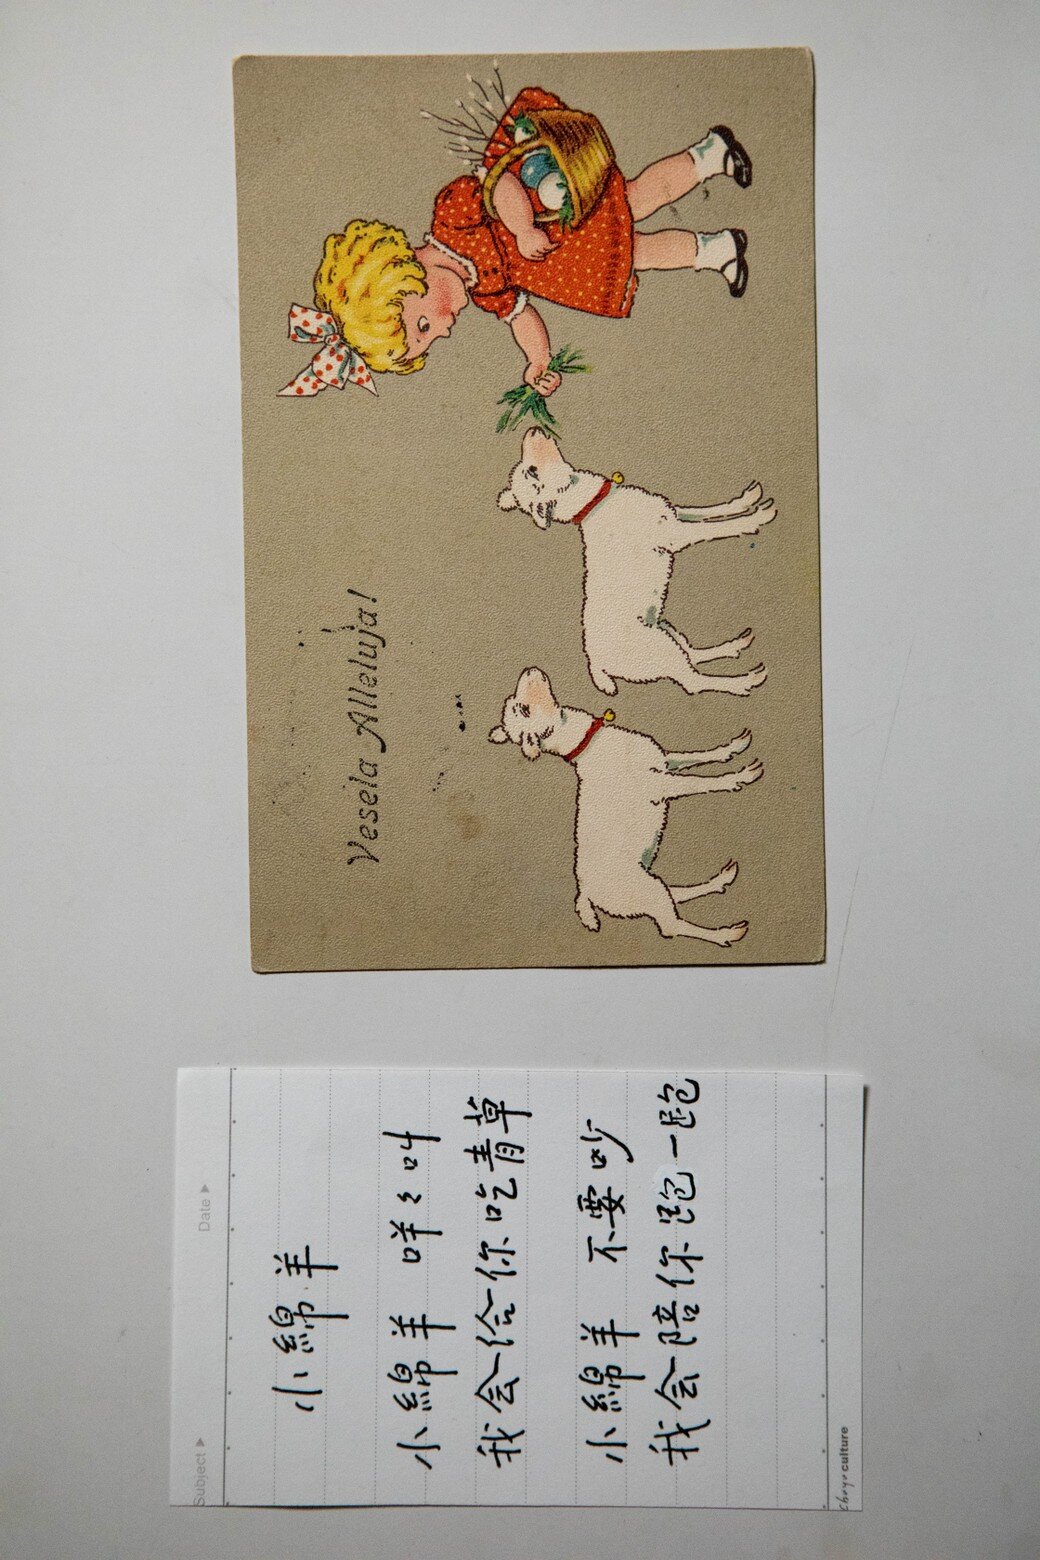 Vesela Alleluja!
Subject ▶ Date ▶
小綿羊
小綿羊 咩々叫
我会给你吃青草
小綿羊 不要吵
我会陪你跑一跑
culture